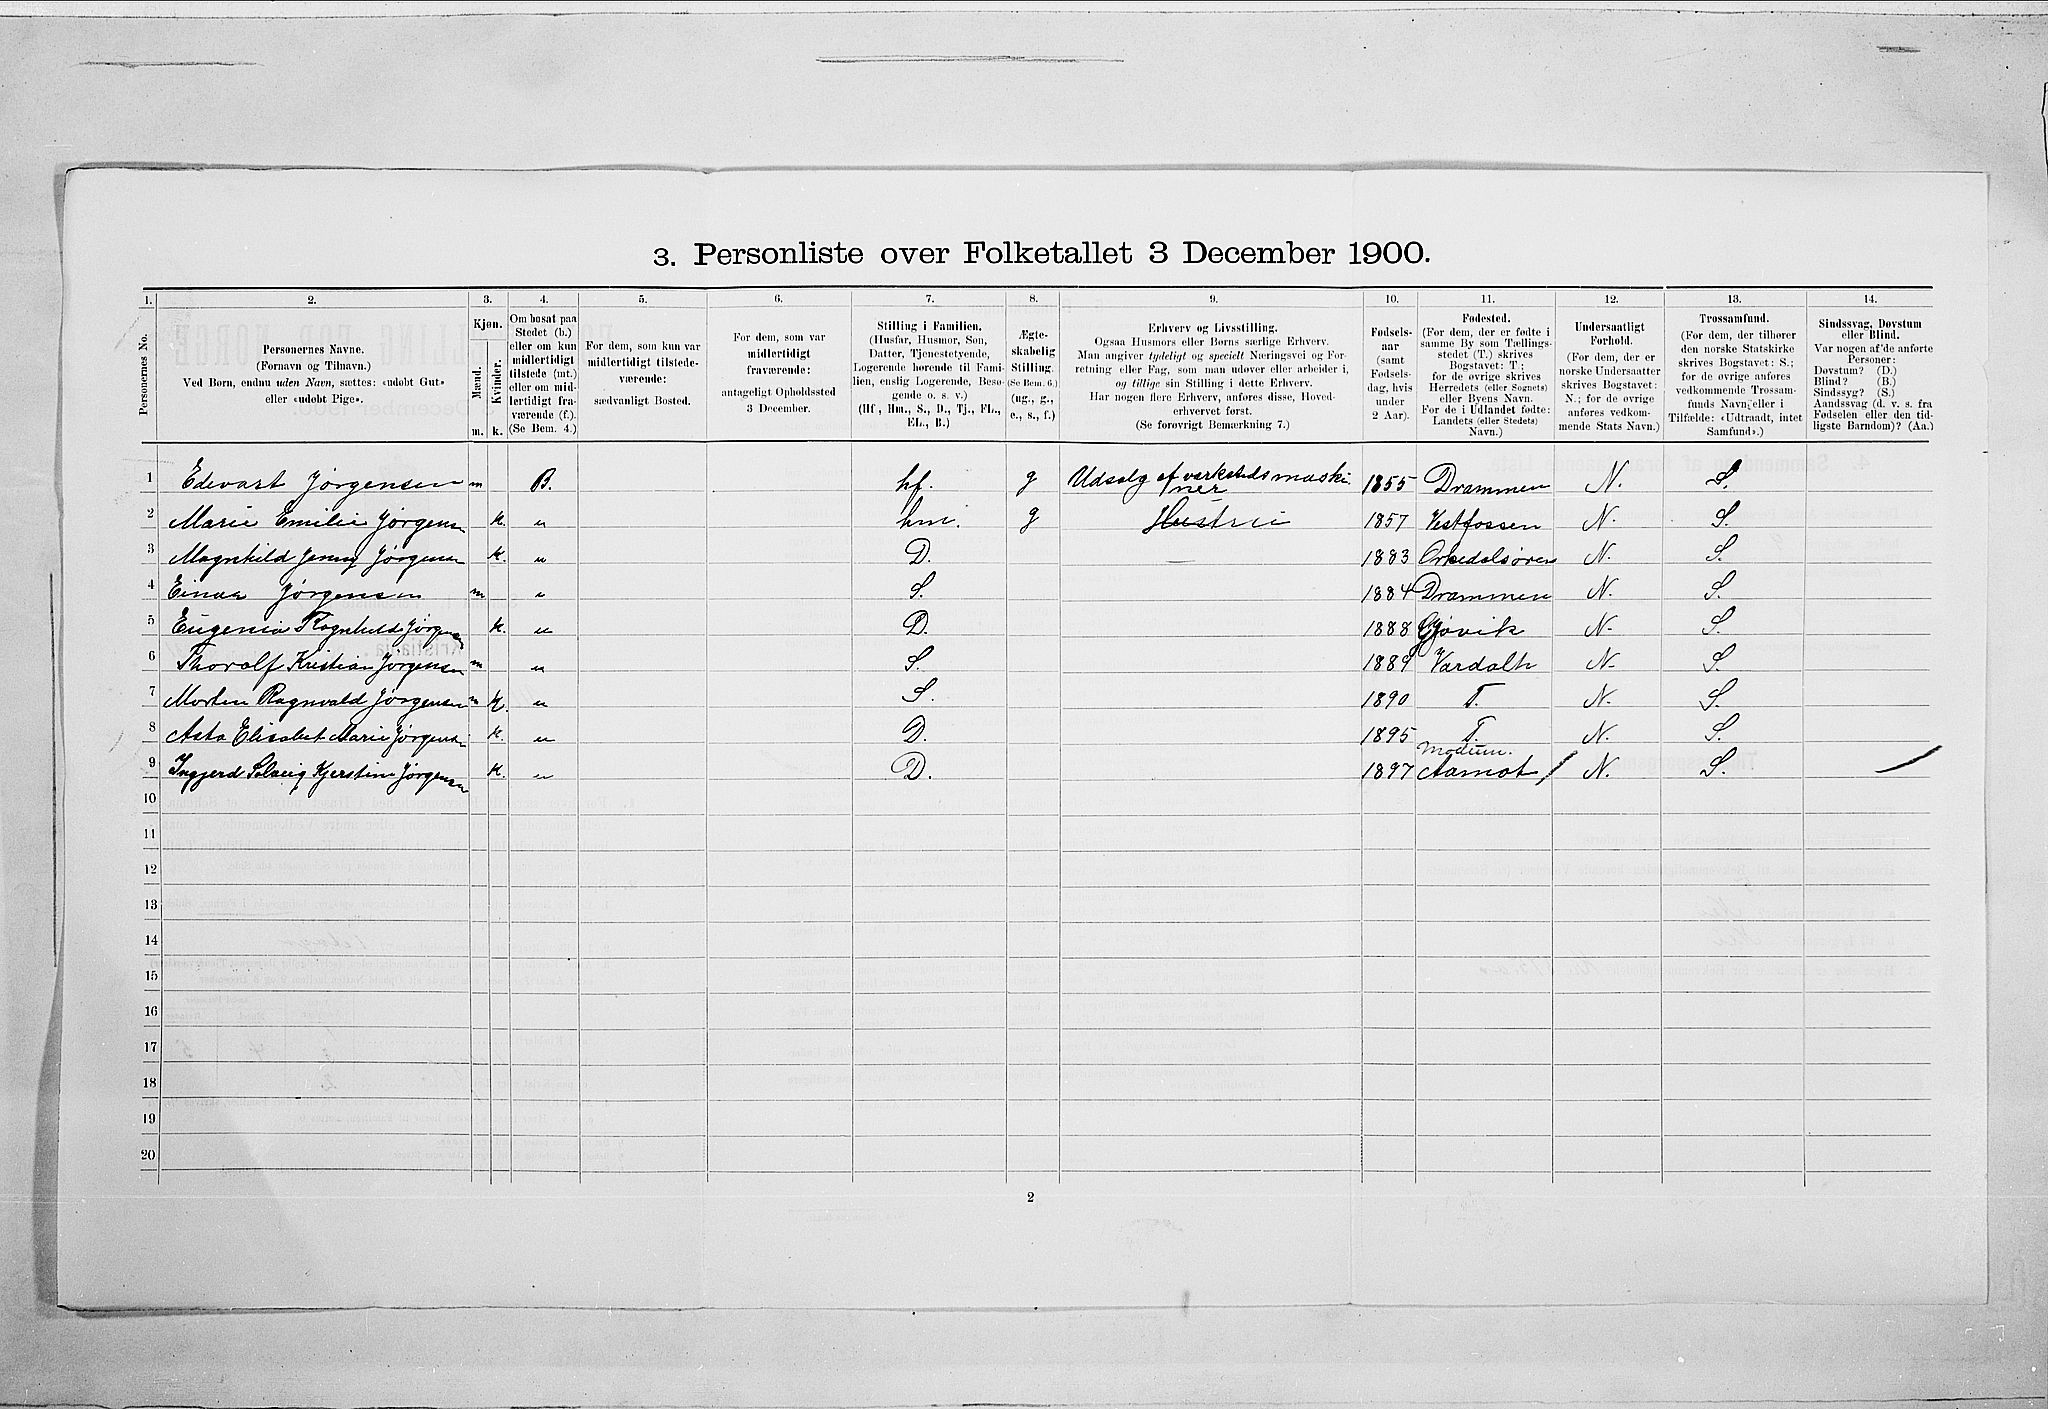 3. Personliste over Folketallet 3 December 1900.
1. 2. 3. 4. 5. 6. 7. 8. 9. 10. 11. 12. 13. 14.
Personernes No.
Personernes Navne.
(Fornavn og Tilnavn.)
Ved Børn, endnu uden Navn, sættes: «udøbt Gut»
eller «udøbt Pige».
Kjøn.
Mænd.
Kvinder.
m. k.
Om bosat paa
Stedet (b.)
eller om kun
midlertidigt
tilstede (mt.)
eller om mid-
lertidigt fra-
værende (f.).
(Se Bem. 4.)
For dem, som kun var
midlertidigt tilstede-
værende:
sædvanligt Bosted.
For dem, som var
midlertidigt
fraværende:
antageligt Opholdssted
3 December.
Stilling i Familien.
(Husfar, Husmor, Søn,
Datter, Tjenestetyende,
Logerende hørende til Fami-
lien, enslig Logerende, Besø-
gende o. s. v.)
(Hf, Hm., S., D., Tj., FL.,
EL., B.)
Ægte-
skabelig
Stilling.
(Se Bem. 6.)
(ug., g.,
e., s., f.)
Erhverv og Livsstilling.
Ogsaa Husmors eller Børns særlige Erhverv.
Man angiver tydeligt og specielt Næringsvei og For-
retning eller Fag, som man udøver eller arbeider i,
og tillige sin Stilling i dette Erhverv.
Har nogen flere Erhverv, anføres disse, Hoved-
erhvervet først.
(Se forøvrigt Bemærkning 7.)
Fødsels-
aar
(samt
Fødsels-
dag, hvis
under
2 Aar).
Fødested.
(For dem, der er fødte i
samme By som Tællings-
stedet (T.) skrives
Bogstavet: T;
for de øvrige skrives
Herredets (eller Sognets)
eller Byens Navn.
For de i Udlandet fødte:
Landets (eller Stedets)
Navn.)
Undersaatligt
Forhold.
(For dem, der er
norske Undersaatter
skrives Bogstavet:
N.; for de øvrige
anføres vedkom-
mende Stats Navn.)
Trossamfund.
(For dem, der tilhører
den norske Statskirke
skrives Bogstavet: S.;
for de øvrige anføres
vedkommende Trossam-
funds Navn, eller i
Tilfælde: «Udtraadt, intet
Samfund».)
Sindssvag, Døvstum
eller Blind.
Var nogen af de anførte
Personer:
Døvstum? (D.)
Blind? (B.)
Sindssyg? (S.)
Aandssvag (d. v. s. fra
Fødselen eller den tid-
ligste Barndom)? (Aa.)
1 Edevart Jørgensen m B. hf. g Udsalg af værkstedsmaski 1855 Drammen N. S.
ner
2 Marie Emilie Jørgensn k. " hm. g Hustru 1857 Vestfossen N. S.
3 Magnhild Jenny Jørgensen k. " D. — 1883 Orkedalsøren N. S.
4 Einar Jørgensen m " S. 1884 Drammen N. S.
5 Eugenia Ragnhild Jørgensen k. " D. 1888 Gjøvik N. S.
6 Thoralf Kristian Jørgensen m " S. 1889 Vardalh N. S.
7 Morten Ragnvald Jørgensen m K. " S. 1890 T. N. S.
8 Asta Elisabet Marie Jørgensn k. " D. 1895 T. N. S.
Modum.
9 Ingjerd Solveig Kjerstine Jørgensen k. " D. 1897 Aamot / N. S.
10
11
12
13
14
15
16
17
18
19
20
2